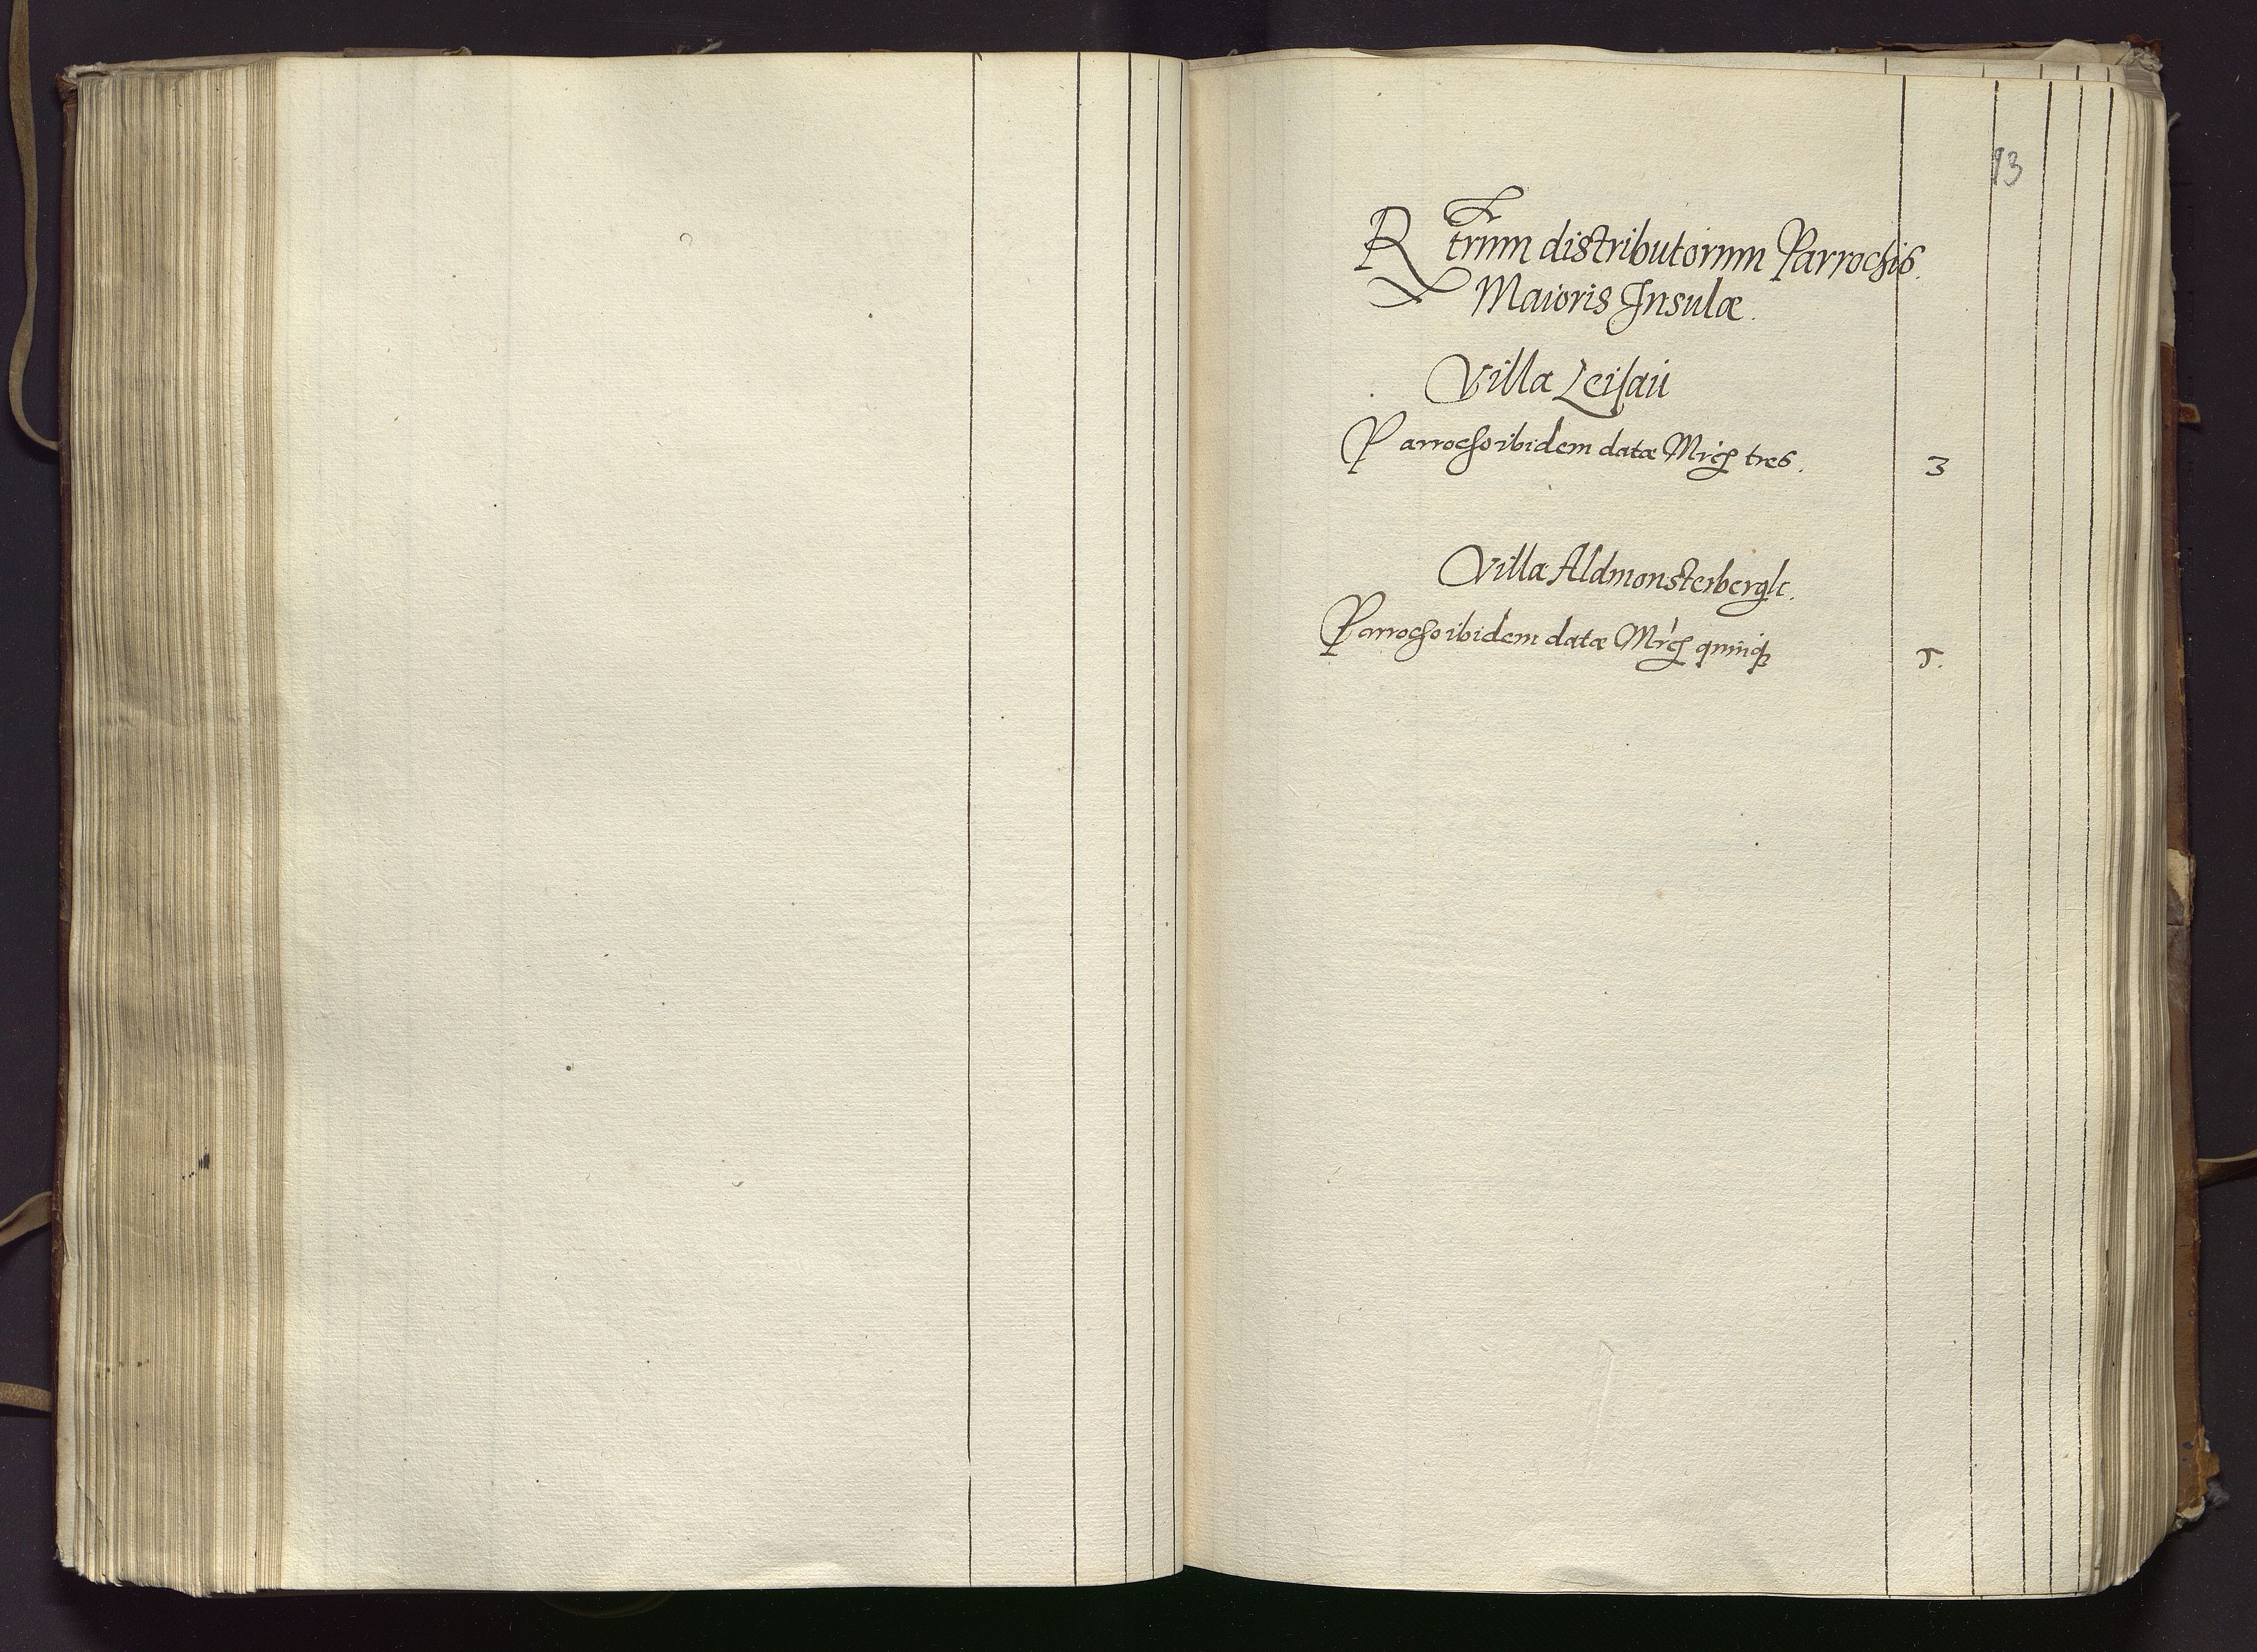 13
Rtrum distributorum Parrochis
Maioris Insulæ.
Villa Leisau
Parrocho ibidem datæ Mrcę tres. 3
Villa Aldmonsterbergk.
Parrocho ibidem datæ Mrcę quinqꝫ 5.